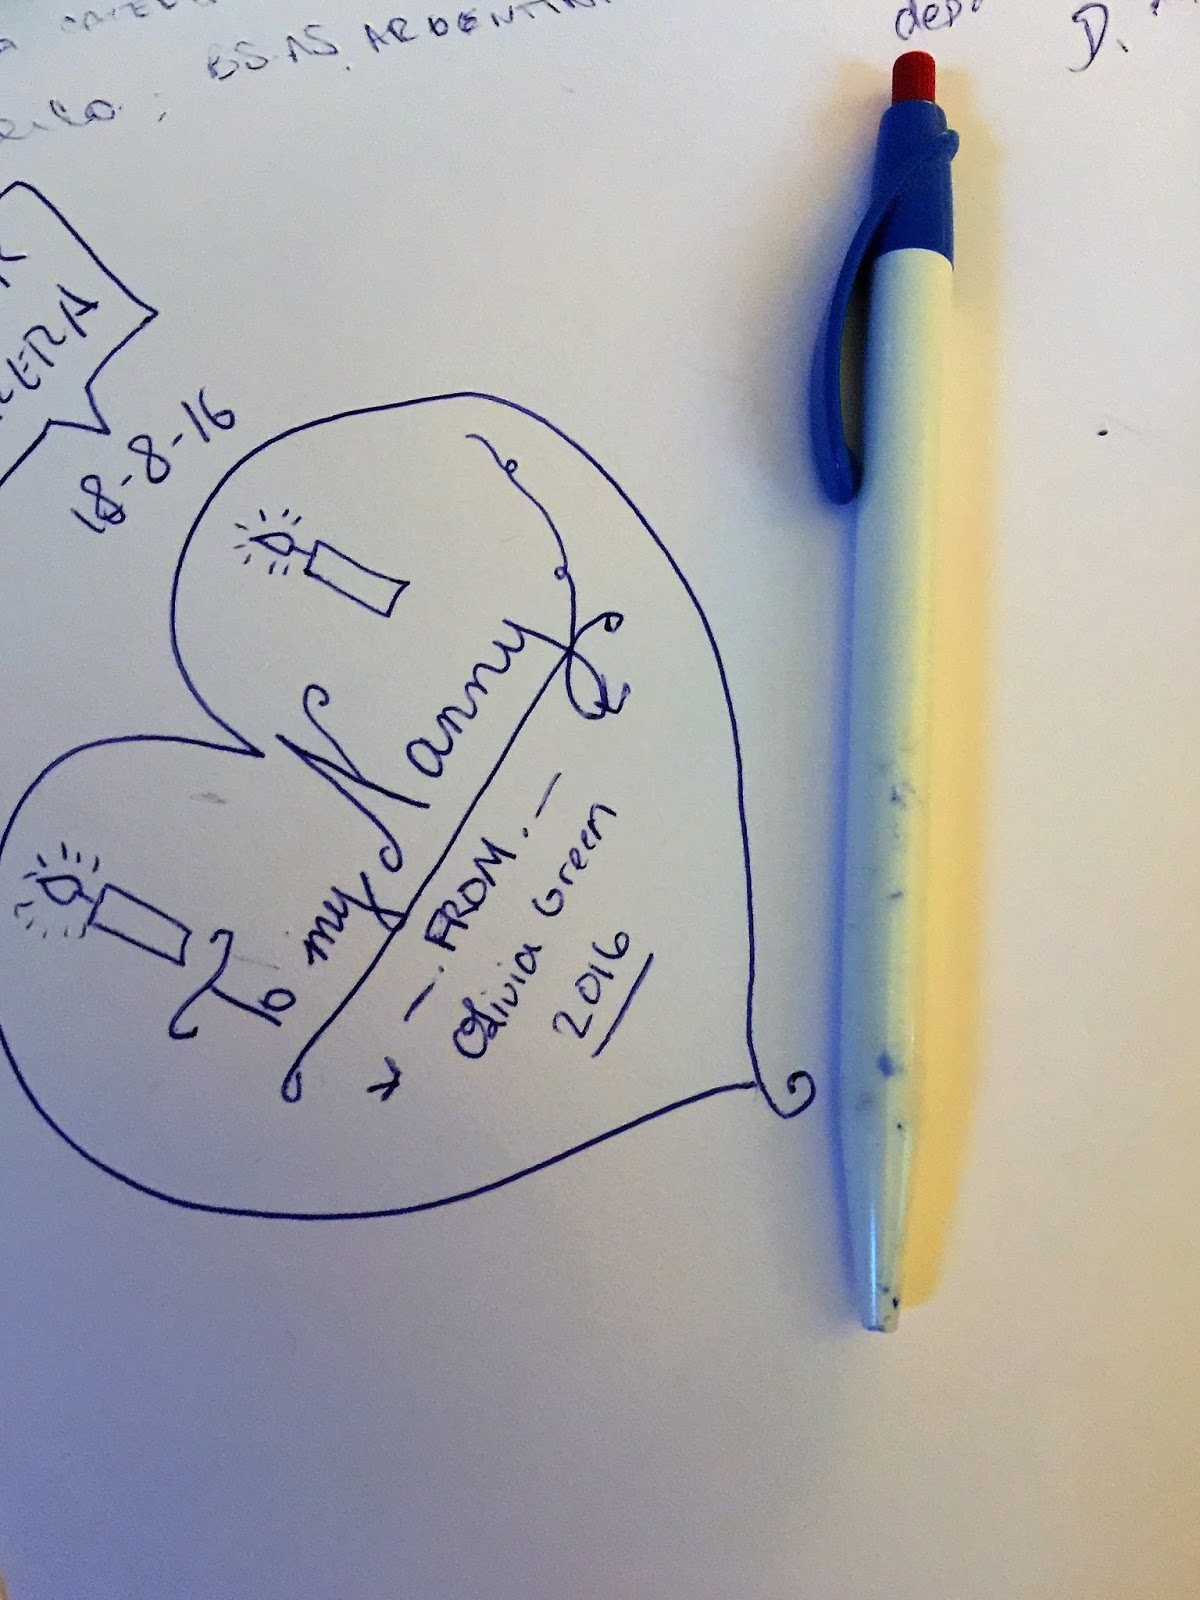 BS.AS. ARGENTIN
D.
18-8-16
To my Nanny
- . FROM . -
Olivia Green
2016